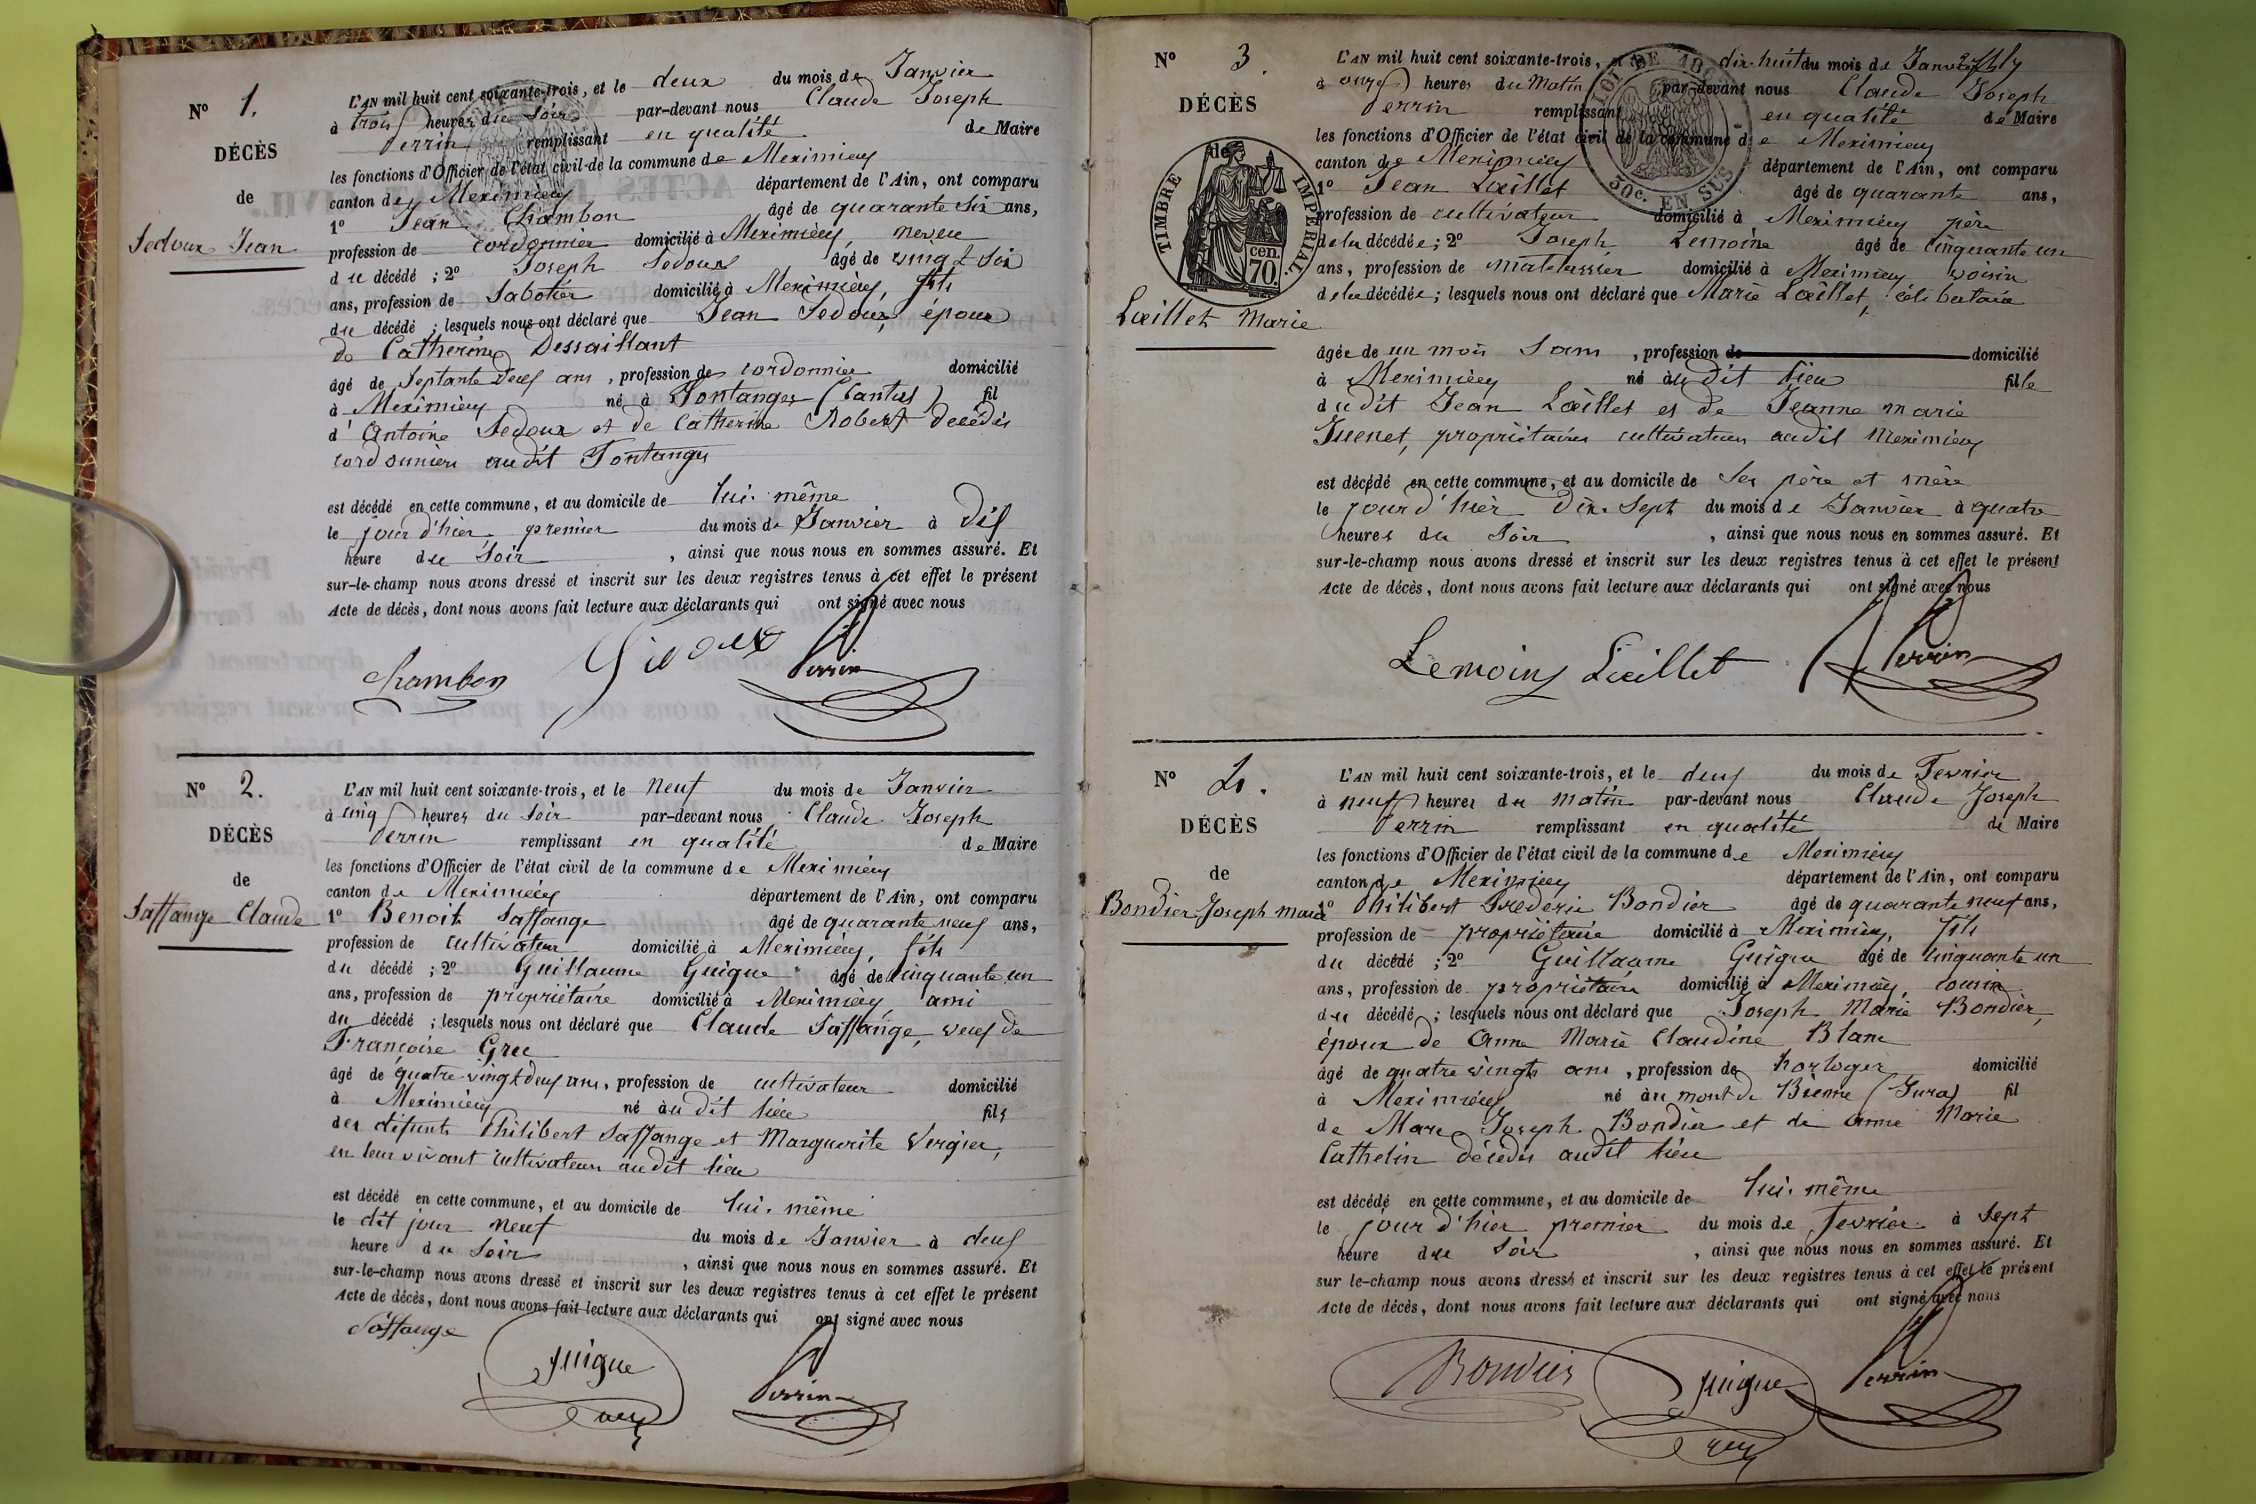 N° 1.
DÉCÈS
de
Sedoux Jean
L'AN mil huit cent soixante-trois, et le deux du mois de Janvier
à trois heures du Soir par-devant nous Claude Joseph
Perrin remplissant en qualité de Maire
les fonctions d'Officier de l'état civil de la commune de Meximieux
canton de Meximieux département de l'Ain, ont comparu
1° Jean Chambon âgé de quarante six ans,
profession de cordonnier domicilié à Meximieux, neveu
du décédé ; 2° Joseph Sedoux âgé de vingt six
ans, profession de Sabotier domicilié à Meximieux, fils
du décédé ; lesquels nous ont déclaré que Jean Sedoux, époux
de Catherine Dessaillant
âgé de Septante deux ans, profession de cordonnier domicilié
à Meximieux né à Fontanges (Cantal) fil
d'Antoine Sedoux et de Catherine Robert décédés
cordonniers audit Fontanges
est décédé en cette commune, et au domicile de lui-même
le jour d'hier premier du mois de Janvier à dix
heure du Soir, ainsi que nous nous en sommes assuré. Et
sur-le-champ nous avons dressé et inscrit sur les deux registres tenus à cet effet le présent
Acte de décès, dont nous avons fait lecture aux déclarants qui ont signé avec nous
Chambon Sedoux Perrin
N° 2.
DÉCÈS
de
Saffange Claude
L'AN mil huit cent soixante-trois, et le neuf du mois de Janvier
à cinq heures du Soir par-devant nous Claude Joseph
Perrin remplissant en qualité de Maire
les fonctions d'Officier de l'état civil de la commune de Meximieux
canton de Meximieux département de l'Ain, ont comparu
1° Benoit Saffange âgé de quarante neuf ans,
profession de cultivateur domicilié à Meximieux, fils
du décédé ; 2° Guillaume Guigue âgé de cinquante un
ans, profession de propriétaire domicilié à Meximieux ami
du décédé ; lesquels nous ont déclaré que Claude Saffange, veuf de
Françoise Grec
âgé de quatre vingt deux ans, profession de cultivateur domicilié
à Meximieux né au dit lieu fils
des défunts Philibert Saffange et Marguerite Vergier,
en leur vivant cultivateurs audit lieu
est décédé en cette commune, et au domicile de lui-même
le dit jour neuf du mois de Janvier à deux
heure du Soir, ainsi que nous nous en sommes assuré. Et
sur-le-champ nous avons dressé et inscrit sur les deux registres tenus à cet effet le présent
Acte de décès, dont nous avons fait lecture aux déclarants qui ont signé avec nous
Saffange Guigue Perrin
N° 3.
DÉCÈS
TIMBRE IMPERIAL
de
70 cen.
Lœillet Marie
LOI DE
30c. EN SUS
L'AN mil huit cent soixante-trois, dix-huit du mois de Janvier
à onze heures du Matin par-devant nous Claude Joseph
Perrin remplissant en qualité de Maire
les fonctions d'Officier de l'état civil de la commune de Meximieux
canton de Meximieux département de l'Ain, ont comparu
1° Jean Lœillet âgé de quarante ans,
profession de cultivateur domicilié à Meximieux père
de la décédée ; 2° Joseph Lemoine âgé de cinquante un
ans, profession de matelassier domicilié à Meximieux voisin
de la décédée ; lesquels nous ont déclaré que Marie Lœillet, célibataire
âgée de un mois, profession de domicilié
à Meximieux né au dit lieu fille
dudit Jean Lœillet et de Jeanne marie
Guenet, propriétaires cultivateurs audit Meximieux
est décédé en cette commune, et au domicile de Ses père et mère
le jour d'hier Dix-Sept du mois de Janvier à quatre
heures du Soir, ainsi que nous nous en sommes assuré. Et
sur-le-champ nous avons dressé et inscrit sur les deux registres tenus à cet effet le présent
Acte de décès, dont nous avons fait lecture aux déclarants qui ont signé avec nous
Lemoine Lœillet Perrin
N° 4.
DÉCÈS
de
Bondier Joseph marie
L'AN mil huit cent soixante-trois, et le deux du mois de Fevrier
à neuf heures du matin par-devant nous Claude Joseph
Perrin remplissant en qualité de Maire
les fonctions d'Officier de l'état civil de la commune de Meximieux
canton de Meximieux département de l'Ain, ont comparu
1° Philibert Frederic Bondier âgé de quarante neuf ans,
profession de propriétaire domicilié à Meximieux, fils
du décédé ; 2° Guillaume Guigue âgé de cinquante un
ans, profession de propriétaire domicilié à Meximieux, cousin
du décédé ; lesquels nous ont déclaré que Joseph Marie Bondier,
époux de Anne Marie Claudine Blanc
âgé de quatre vingts ans, profession de horloger domicilié
à Meximieux né au mont de Bienne (Jura) fil
de Marc Joseph Bondier et de Anne Marie
Cathelin décédés audit lieu
est décédé en cette commune, et au domicile de lui-même
le jour d'hier premier du mois de Fevrier à Sept
heure du Soir, ainsi que nous nous en sommes assuré. Et
sur le-champ nous avons dressé et inscrit sur les deux registres tenus à cet effet le présent
Acte de décès, dont nous avons fait lecture aux déclarants qui ont signé avec nous
Bondier Guigue Perrin